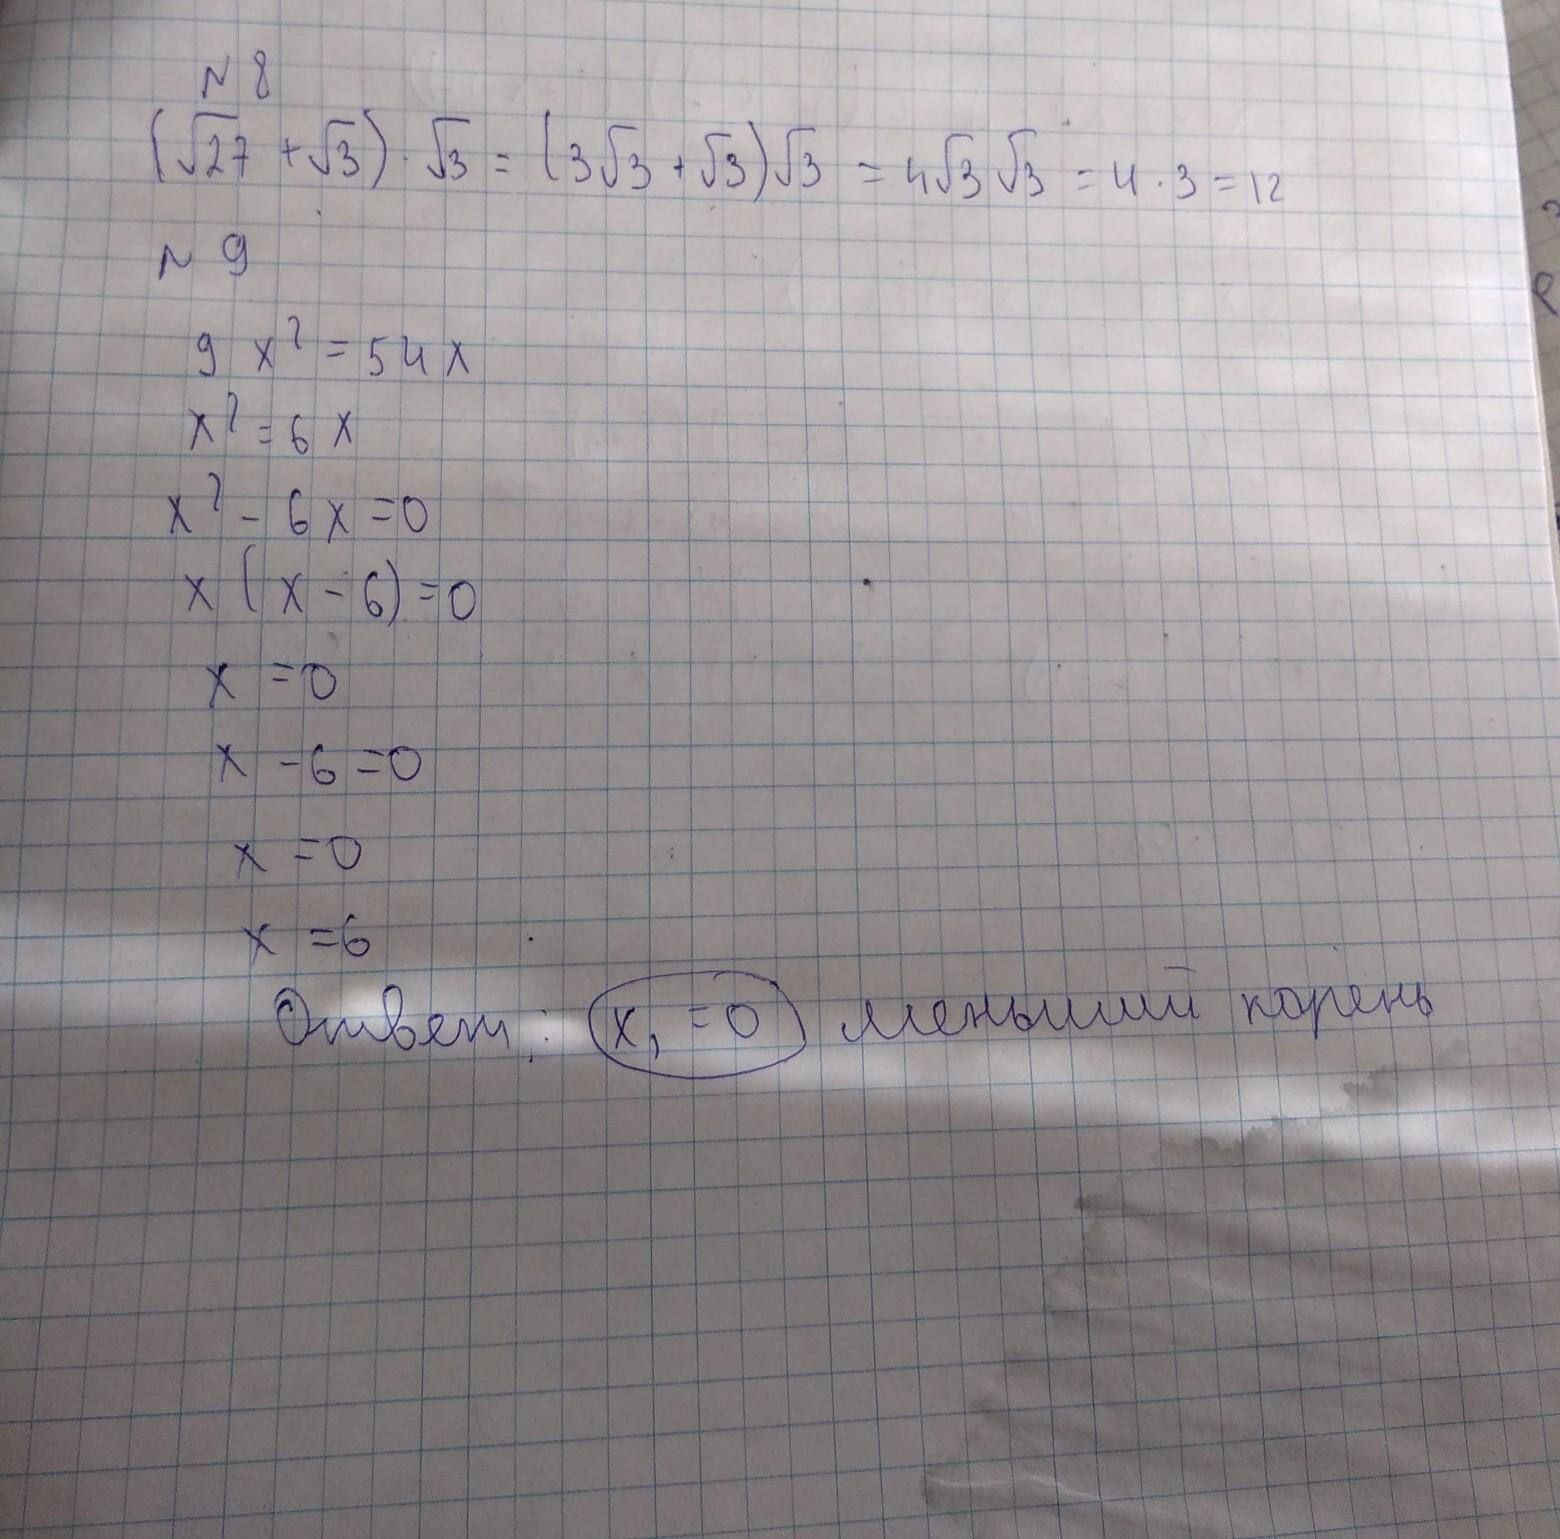 N 8
(√27 + √3) · √3 = (3√3 + √3)√3 = 4√3 √3 = 4 · 3 = 12
N 9
9 x² = 54 x
x² = 6 x
x² - 6 x = 0
x (x - 6) = 0
x = 0
x - 6 = 0
x = 0
x = 6
Ответ: x₁ = 0 меньший корень